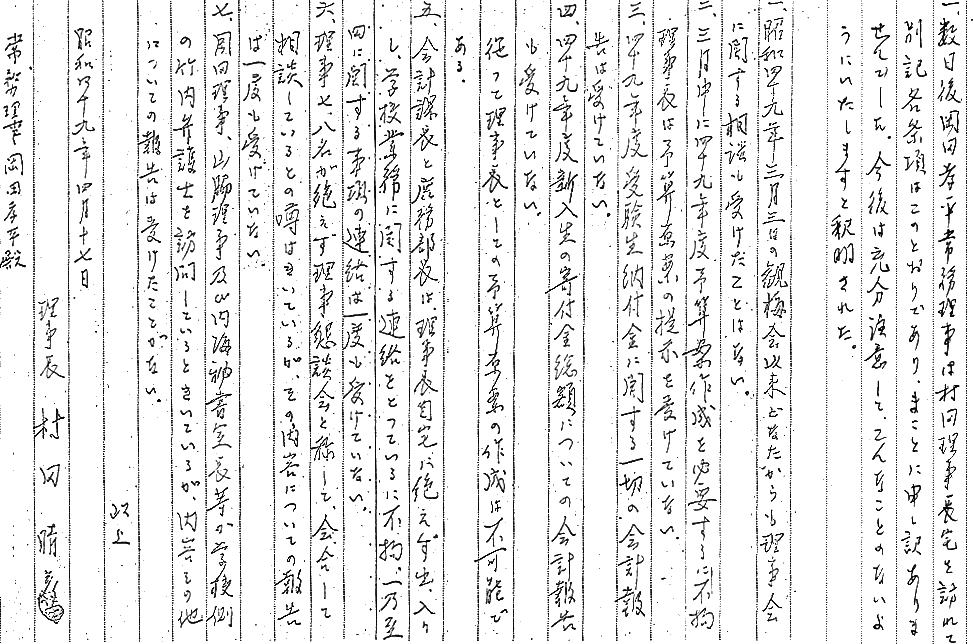 一、数日後岡田孝平常務理事は村田理事長宅を訪れて
別記各条項はこのとおりであり、まことに申し訳ありま
せんでした。今後は充分注意して、こんなことのないよ
うにいたしますと釈明された。
一、昭和四十九年三月三日の観梅会以来どなたからも理事会
に関する相談も受けたことはない。
二、三月中に四十九年度予算案作成を必要するに不拘
理事長は予算原案の提示を受けていない。
三、四十九年度受験生納付金に関する一切の会計報
告は受けていない。
四、四十九年度新入生の寄付金総額についての会計報告
も受けていない。
従って理事長としての予算原案の作成は不可能で
ある。
五、会計課長と庶務部長は、理事長自宅に絶えず出入り
し、学校業務に関する連絡をとっているに不拘、一乃至
四に関する事項の連絡は一度も受けていない。
六、理事七、八名が絶えず理事懇談会と称して、会合して
相談しているとの噂はきいているが、その内容についての報告
は一度も受けていない。
七、岡田理事、山勝理事及び内海秘書室長等が学校側
の竹内弁護士を訪問しているときいているが、内容その他
についての報告は受けたことがない。
以上
昭和四十九年四月十七日
理事長 村田晴彦
常務理事岡田孝平殿